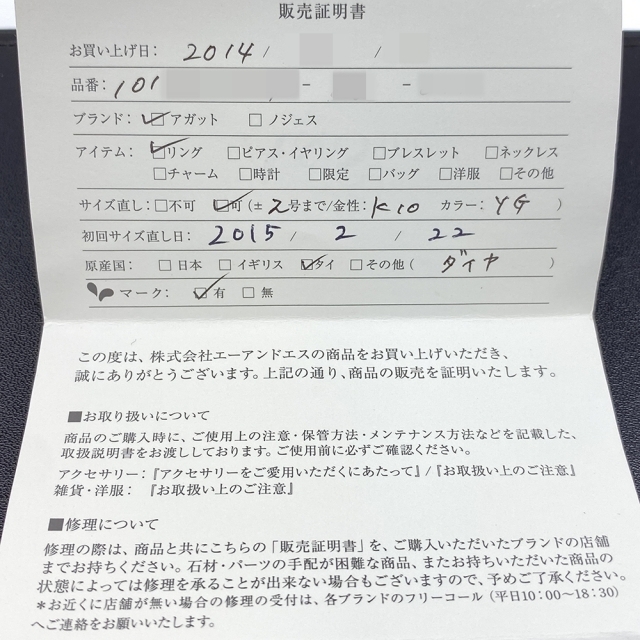 販売証明書
お買い上げ日： 2014 / /
品番： 101 - -
ブランド： ☑アガット □ノジェス
アイテム： ☑リング □ピアス・イヤリング □ブレスレット □ネックレス
□チャーム □時計 □限定 □バッグ □洋服 □その他
サイズ直し：□不可 ☑可（± 2号まで/金性： K10 カラー： YG ）
初回サイズ直し日： 2015 / 2 / 22
原産国： □日本 □イギリス ☑タイ □その他（ ダイヤ ）
マーク： ☑有 □無
この度は、株式会社エーアンドエスの商品をお買い上げいただき、
誠にありがとうございます。上記の通り、商品の販売を証明いたします。
■お取り扱いについて
商品のご購入時に、ご使用上の注意・保管方法・メンテナンス方法などを記載した、
取扱説明書をお渡ししております。ご使用前に必ずご確認ください。
アクセサリー：『アクセサリーをご愛用いただくにあたって』/『お取扱い上のご注意』
雑貨・洋服： 『お取扱い上のご注意』
■修理について
修理の際は、商品と共にこちらの「販売証明書」を、ご購入いただいたブランドの店舗
までお持ちください。石材・パーツの手配が困難な商品、またお持ちいただいた商品の
状態によっては修理を承ることが出来ない場合もございますので、予めご了承ください。
＊お近くに店舗が無い場合の修理の受付は、各ブランドのフリーコール（平日10:00〜18:30）
へご連絡をお願いいたします。